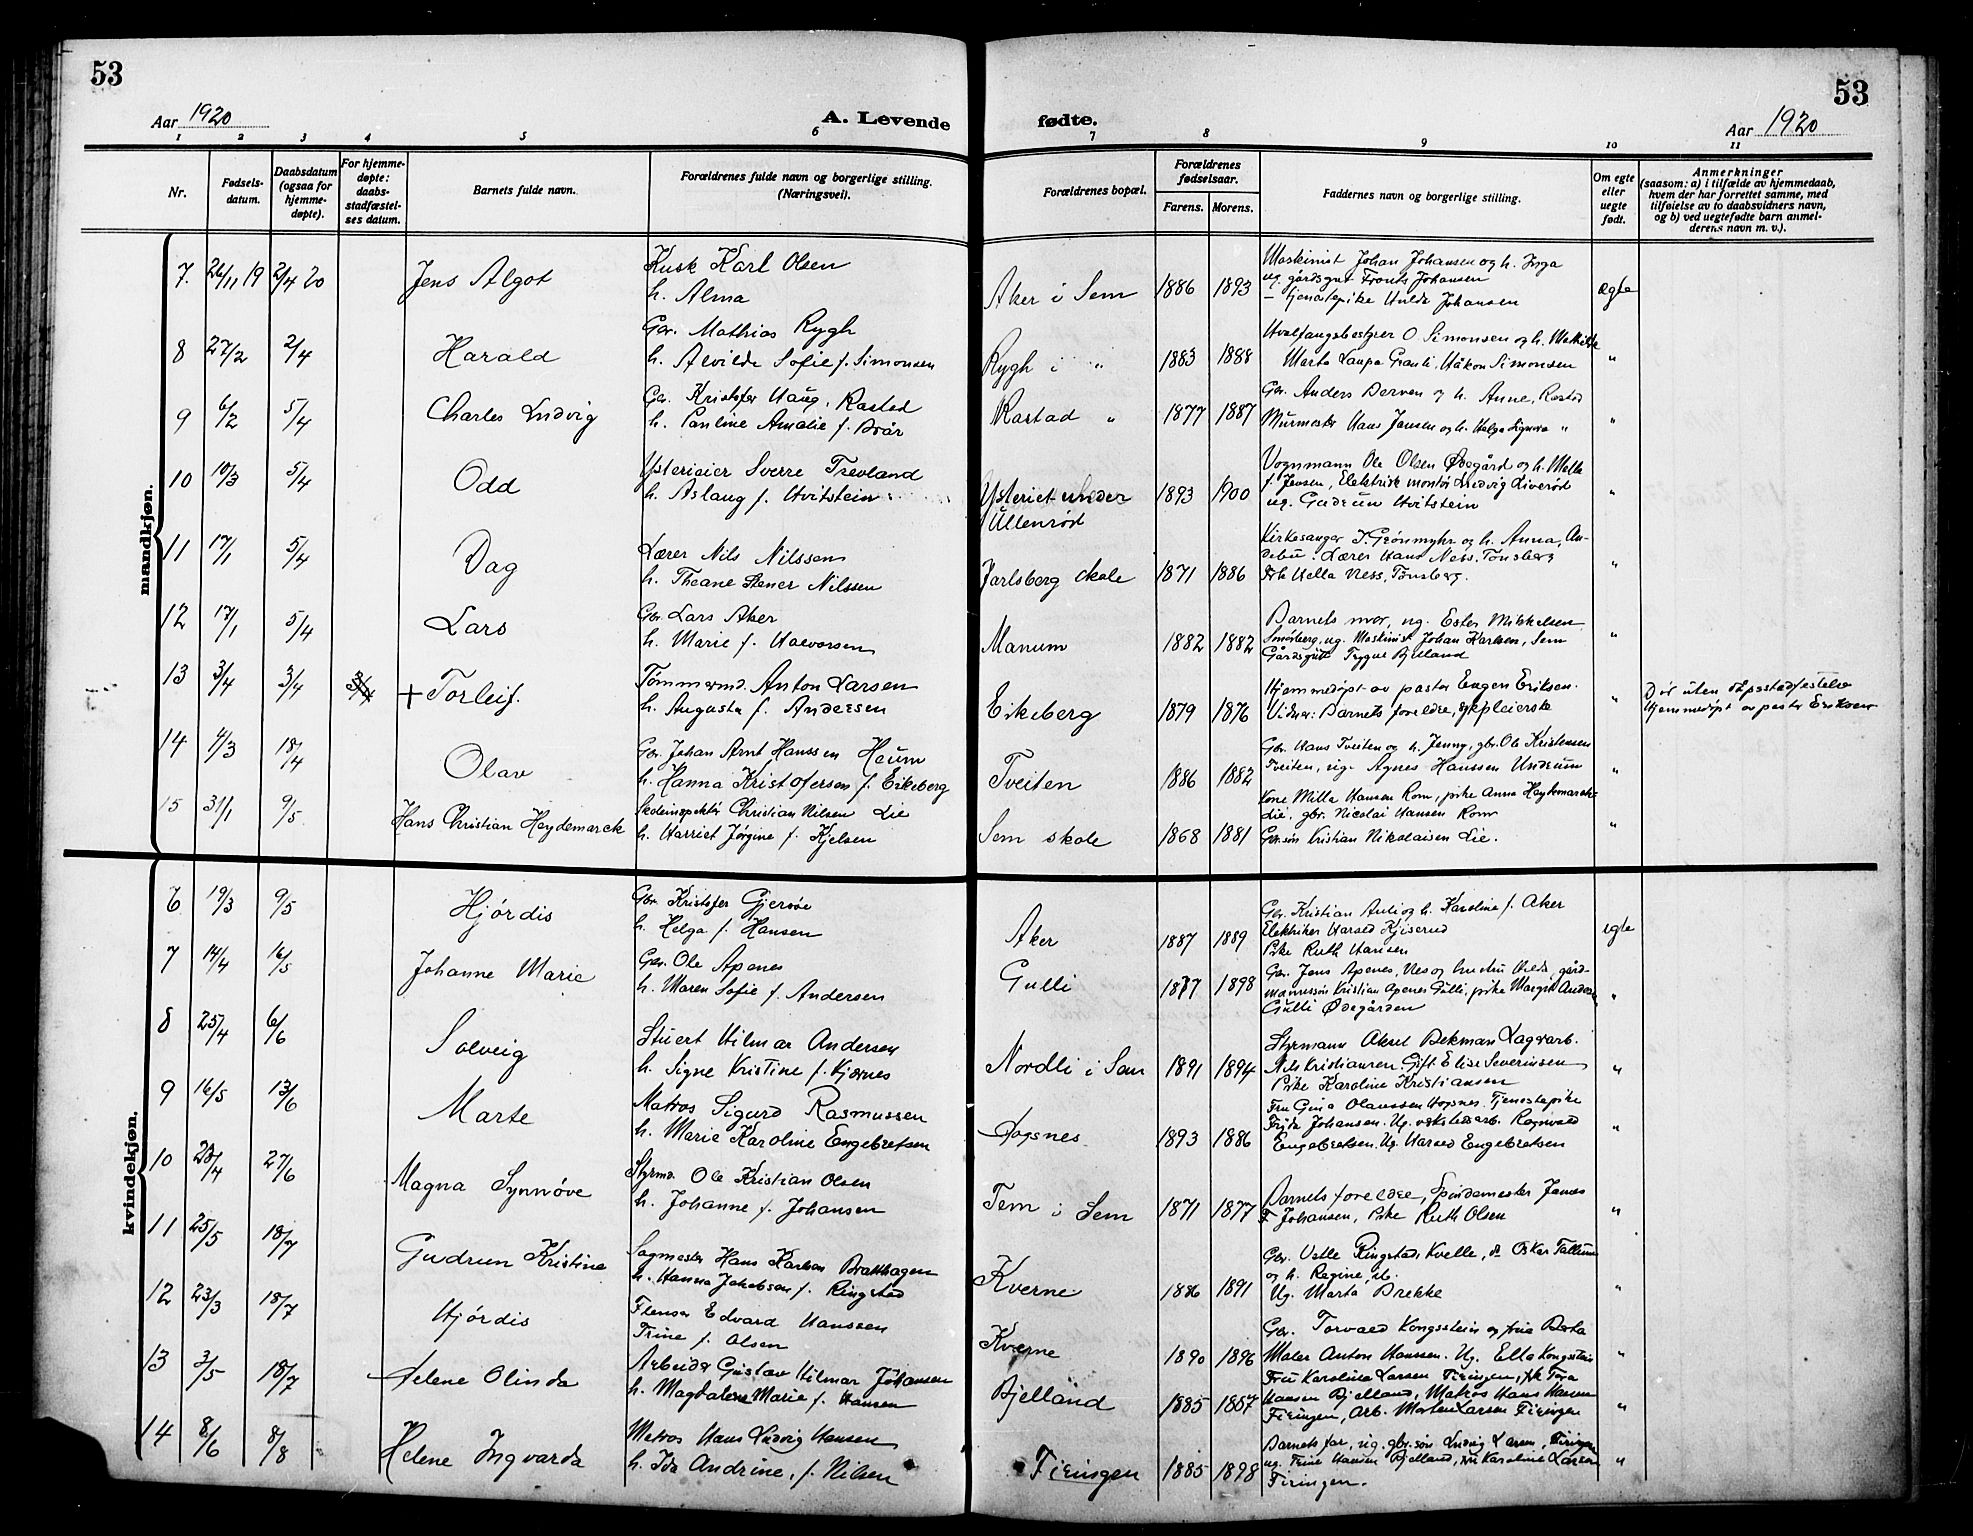 53
53
Aar 1920
A. Levende
fødte.
Aar 1920
1 2 3 4 5 6 7 8 9 10 11
Nr.
Fødsels-
datum.
Daabsdatum
(ogsaa for
hjemme-
døpte).
For hjemme-
døpte:
daabs-
stadfæstel-
ses datum.
Barnets fulde navn.
Forældrenes fulde navn og borgerlige stilling.
(Næringsvei).
Forældrenes bopæl.
Forældrenes
fødselsaar.
Farens. Morens.
Faddernes navn og borgerlige stilling.
Om egte
eller
uegte
født.
Anmerkninger
(saasom: a) i tilfælde av hjemmedaab,
hvem der har forrettet samme, med
tilføielse av to daabsvidners navn,
og b) ved uegtefødte barn anmel-
derens navn m. v.).
mandkjøn.
7. 26/11 19 2/4 20 Jens Algot
Kusk Karl Olsen
h. Alma
Aker i Sem 1886 1893
Maskinist Johan Johansen og h. Inga
ug. gårdsgut Frants Johansen
– tjenestepike Hulda Johansen
egte
8 27/2 2/4 Harald
Gbr. Mathias Rygh
h. Alvilde Sofie f. Simonsen
Rygh i " 1883 1888
Hvalfangstbestyrer O Simonsen og h. Mathilde
Marta Laupa Granli, Håkon Simonsen
"
9 6/2 5/4 Charles Ludvig
Gbr. Kristofer Haug, Rastad
h. Pauline Amalie f. Brår
Rastad " 1877 1887
Gbr. Anders Berven og h. Anne, Rastad
Murmester Hans Jensen og h. Helga Signora "
"
10 10/3 5/4 Odd
Ysterieier Sverre Trevland
h. Aslaug f. Hvitstein
Ysteriet under
Ullenrød
1893 1900
Vognmann Ole Olsen Ødegård og h. Mella
f. Jensen, Elektrisk montør Ludvig Liverød
ug. Gudrun Hvitstein
"
11 17/1 5/4 Dag
Lærer Nils Nilssen
h. Theane Stener Nilssen
Jarlsberg skole 1871 1886
Kirkesanger I. Grønmyhr og h. Anna, An-
debu. Lærer Hans Ness, Tønsberg
Frk Hella Ness, Tønsberg.
"
12 17/1 5/4 Lars
Gbr. Lars Aker
h. Marie f. Halvorsen
Manum 1882 1882
Barnets mor, ug. Ester Mikkelsen
Smørberg, ug. Maskinist Johan Karlsen, Sem
Gårdsgutt Trygve Bjelland
"
13 3/4 3/4 + Torleif.
Tømmermd. Anton Larsen
h. Augusta f. Andersen
Eikeberg 1879 1876
Hjemmedøpt av pastor Eugen Eriksen.
Vidner: Barnets foreldre, sykepleierske
"
Død uten dåpsstadfestelse
Hjemmedøpt av pastor Eriksen
14 4/3 18/4 Olav
Gbr. Johan Arnt Hanssen Heum
h. Hanna Kristofersen f. Eikeberg
Tveiten 1886 1882
Gbr. Hans Tveiten og h. Jenny, gbr. Ole Kristensen
Tveiten, ug. Agnes Hanssen Undrum
"
15 31/1 9/5 Hans Christian Heydemarck
Skoleinspektør Christian Nilsen Lie
h. Harriet Jørgine f. Kjelsen
Sem skole 1868 1881
Kone Milla Hansen Rom, pike Anna Heydemarck-
Lie, gbr. Nicolai Hansen Rom
Gbr.søn Kristian Nikolaisen Lie.
"
kvindekjøn.
6 19/3 9/5 Hjørdis
Gbr. Kristofer Gjersøe
h. Helga f. Hansen
Aker 1887 1889
Gbr. Kristian Auli og h. Karoline f. Aker
Elektriker Harald Kjiserud
Pike Ruth Hansen
egte
7 14/4 16/5 Johanne Marie
Gbr. Ole Apenes
h. Maren Sofie f. Andersen
Gulli 1877 1898
Gbr. Jens Apenes, Nes og hustru Hilda, gård-
mannssøn Kristian Apenes Gulli, pike Margit Andersen
Gulli Ødegården
"
8 25/4 6/6 Solveig
Stuert Hilmar Andersen
h. Signe Kristine f. Kjernes
Nordli i Sem 1891 1894
Styrmann Aksel Bekman Lagerarb.
Nils Kristiansen. Gift Elise Severinsen
Pike Karoline Kristiansen
"
9 16/5 13/6 Marte
Matros Sigurd Rasmussen
h. Marie Karoline Engebretsen
Hogsnes 1893 1886
Fru Gina Olaussen Hogsnes. Tjenestepike
Frida Johansen. Ug. verkstedarb. Ragnvald
Engebretsen. Ug. Harald Engebretsen
"
10 28/4 27/6 Magna Synnøve
Styrmd. Ole Kristian Olsen
h. Johanne f. Johansen
Tem i Sem 1871 1877
Barnets foreldre, Spindemester James
F Johansen, Pike Ruth Olsen
"
11 25/5 18/7 Gudrun Kristine
Sagmester Hans Karlsen Bratthagen
h. Hanna Jakobsen f. Ringstad
Kverne 1886 1891
Gbr. Halle Ringstad, Kvelle, do Oskar Tallum
og h. Regine, ib.
Ug. Marta Brekke
"
12 23/3 18/7 Hjørdis
Flenser Edvard Hanssen
Trine f. Olsen
Kverne 1890 1896
Gbr. Torvald Kongsstein og frue Berta
Maler Anton Hanssen. Ug. Ella Kongsstein
"
13 3/5 18/7 Helene Olinda
Arbeider Gustav Hilmar Johansen
h. Magdalene Marie f. Hansen
Bjelland 1885 1887
Fru Karoline Larsen Firingen, pk Tora
Hansen Bjelland, Matros Hans Hansen
Firingen, Arb. Morten Larsen Firingen
"
14 8/6 8/8 Helene Ingvarda
Matros Hans Ludvig Hansen
h. Ida Andrine, f. Nilsen
Firingen 1885 1898
Barnets far, ug. gbr.søn Ludvig Larsen, Firingen
ug. Trine Hansen Bjelland, fru Karoline Larsen
Firingen.
"